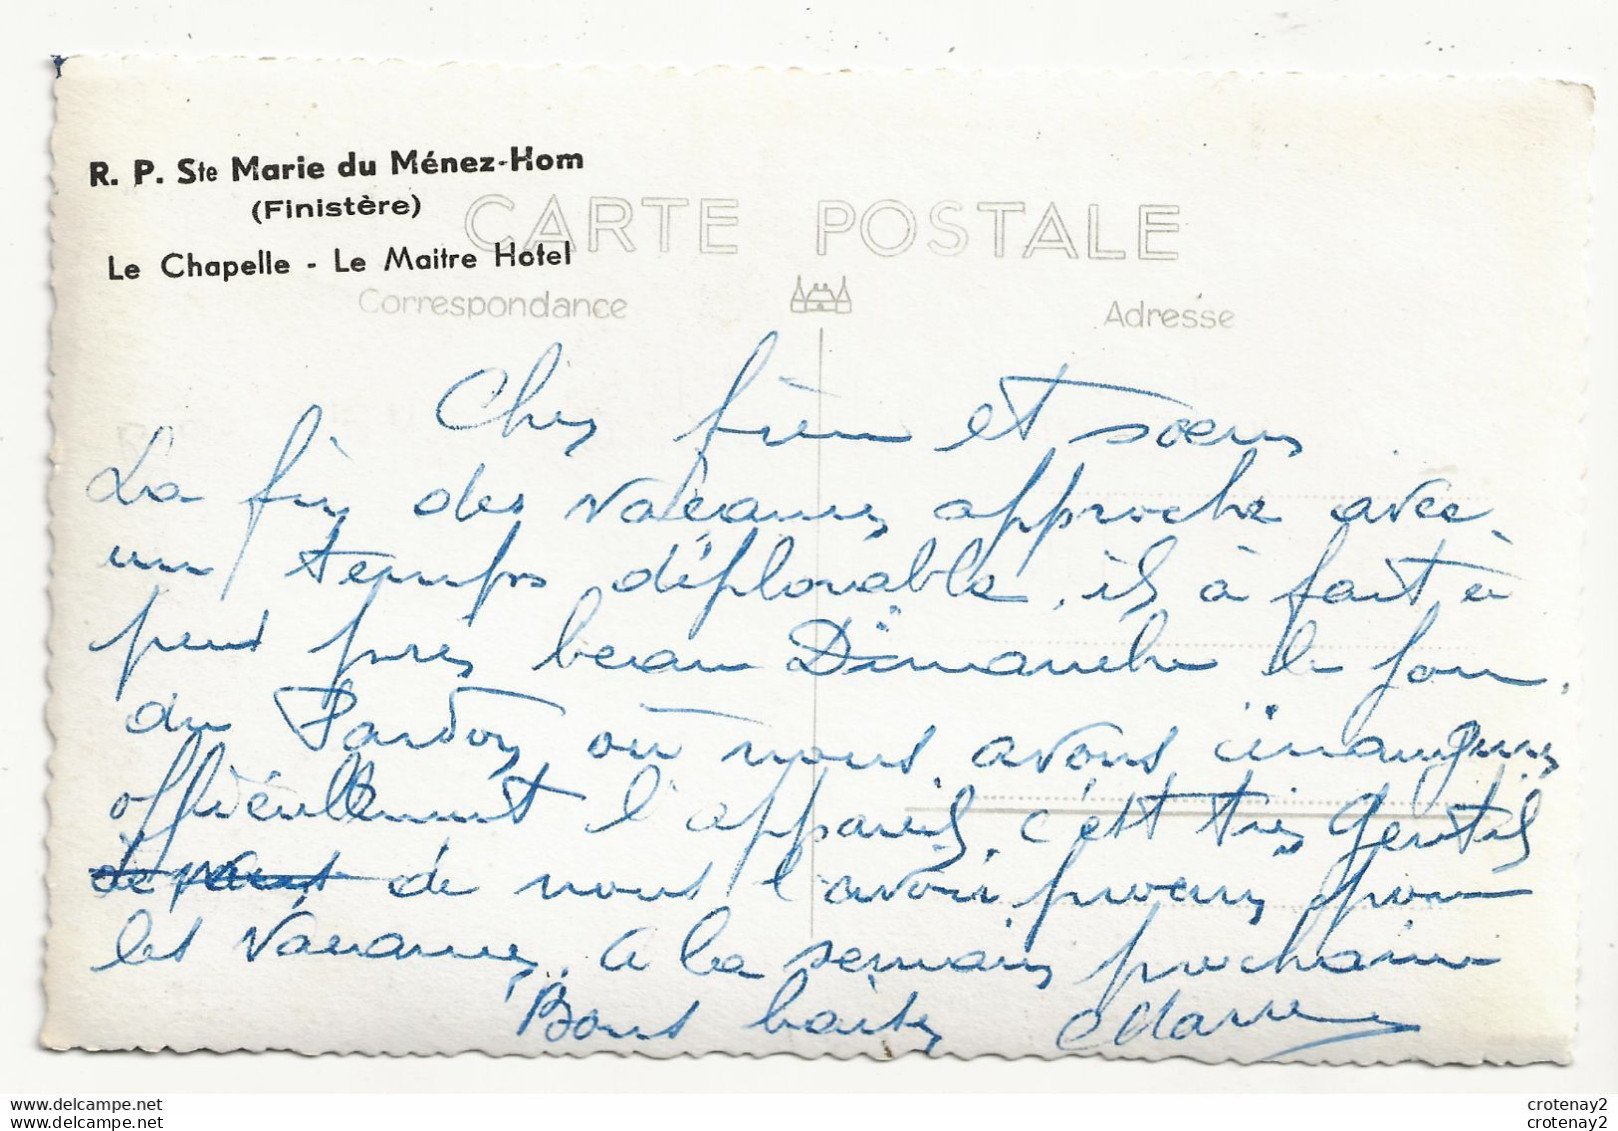 R. P. Ste Marie du Ménez-Hom
(Finistère)
CARTE POSTALE
Le Chapelle - Le Maitre Hotel
Correspondance
Adresse
Chers frère et soeurs
La fin des vacances approche avec
un temps déplorable, il à fait à
peut près beau Dimanche le jour
du Pardon où nous avons inaugurer
officiellement l'appareil, c'est très Gentil
de nous l'avoir pour
les vacances. A la semaine prochaine
Bons baisers
crotenay2.delcampe.net
crotenay2.delcampe.net
crotenay2
crotenay2